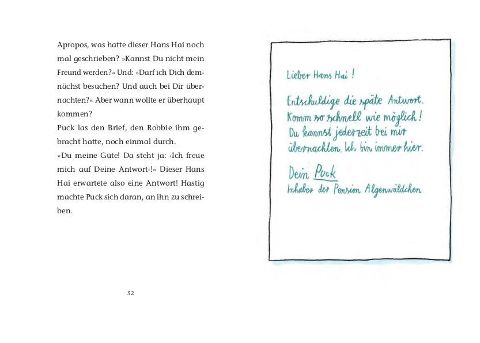 Apropos, was hatte dieser Hans Hai noch
mal geschrieben? »Kannst Du nicht mein
Freund werden?« Und: »Darf ich Dich dem-
nächst besuchen? Und auch bei Dir über-
nachten?« Aber wann wollte er überhaupt
kommen?
Puck las den Brief, den Robbie ihm ge-
bracht hatte, noch einmal durch.
»Du meine Güte! Da steht ja: ›Ich freue
mich auf Deine Antwort‹!« Dieser Hans
Hai erwartete also eine Antwort! Hastig
machte Puck sich daran, an ihn zu schrei-
ben.
32
Lieber Hans Hai!
Entschuldige die späte Antwort.
Komm so schnell wie möglich!
Du kannst jederzeit bei mir
übernachten. Ich bin immer hier.
Dein Puck
Inhaber der Pension Algenwäldchen